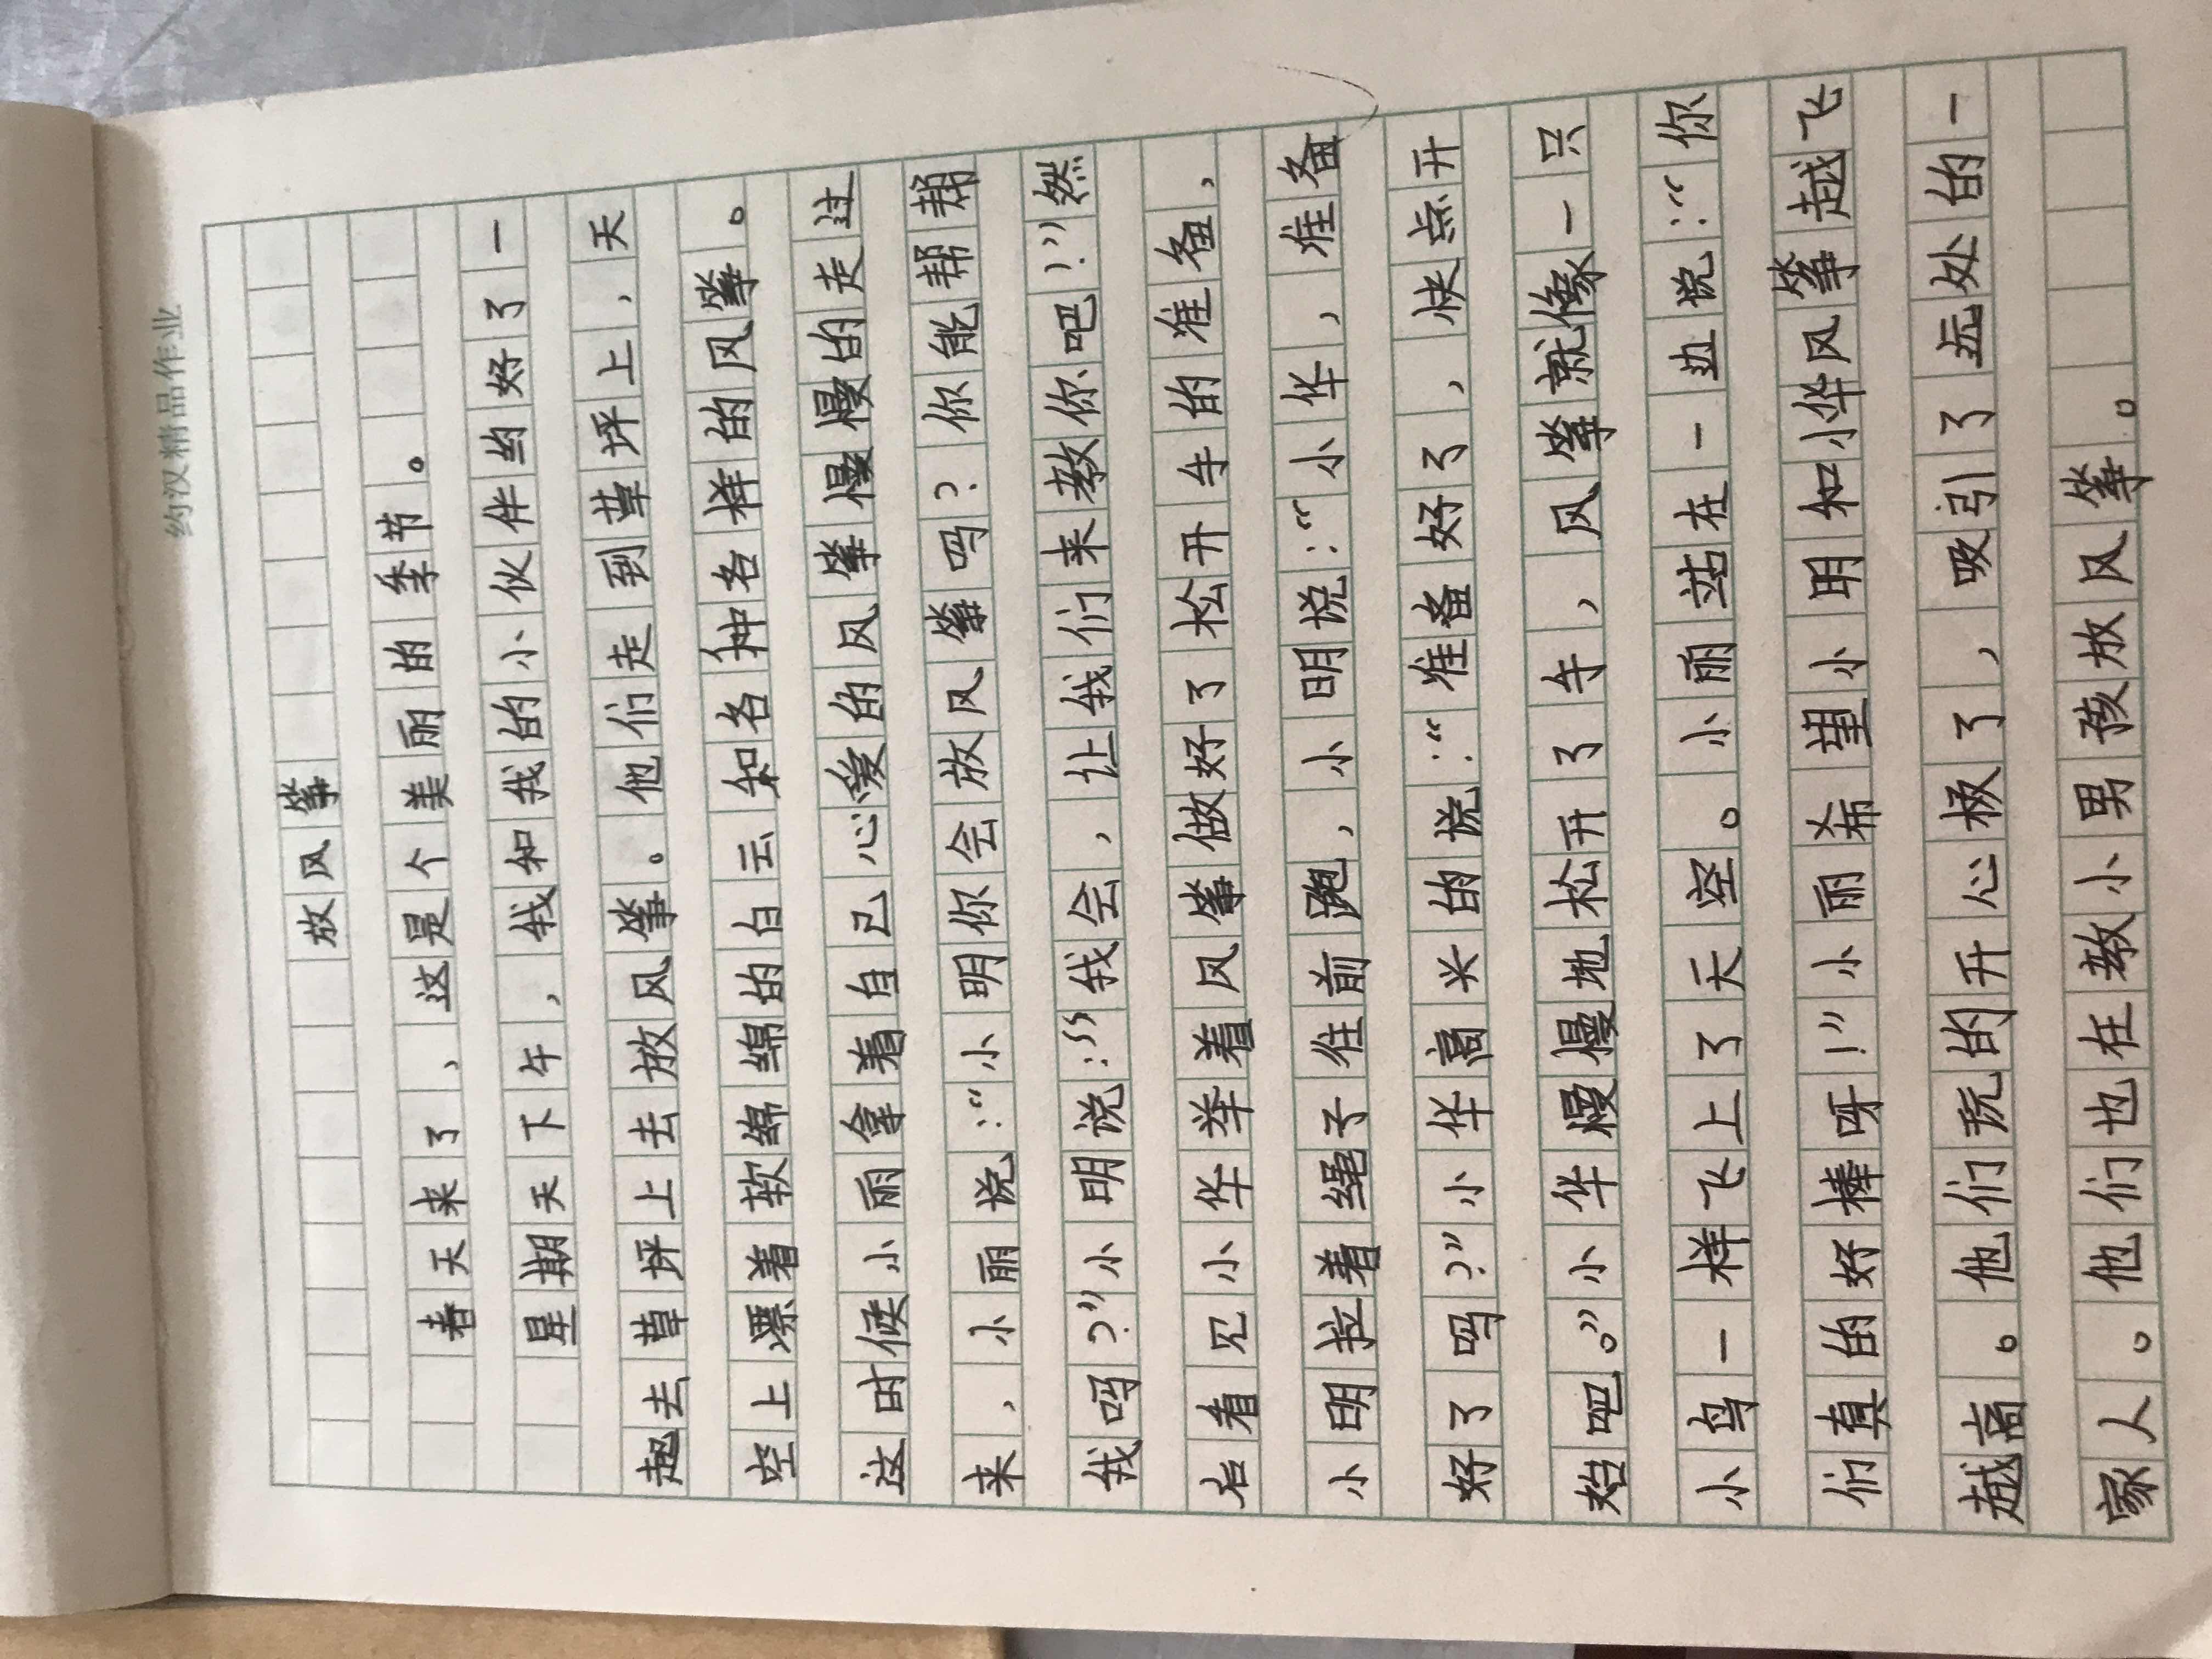 约汉精品作业
放风筝
春天来了，这是个美丽的季节。
星期天下午，我和我的小伙伴约好了一
起去草坪上去放风筝。他们走到草坪上，天
空上漂着软绵绵的白云和各种各样的风筝。
这时候小丽拿着自己心爱的风筝慢慢的走过
来，小丽说：“小明你会放风筝吗？你能帮帮
我吗？”小明说：“我会，让我们来教你吧！”然
后看见小华举着风筝做好了松开手的准备，
小明拉着绳子往前跑，小明说：“小华，准备
好了吗？”小华高兴的说：“准备好了，快点开
始吧。”小华慢慢地松开了手，风筝就像一只
小鸟一样飞上了天空。小丽站在一边说：“你
们真的好棒呀！”小丽希望小明和小华风筝越飞
越高。他们玩的开心极了，吸引了远处的一
家人。他们也在教小男孩放风筝。